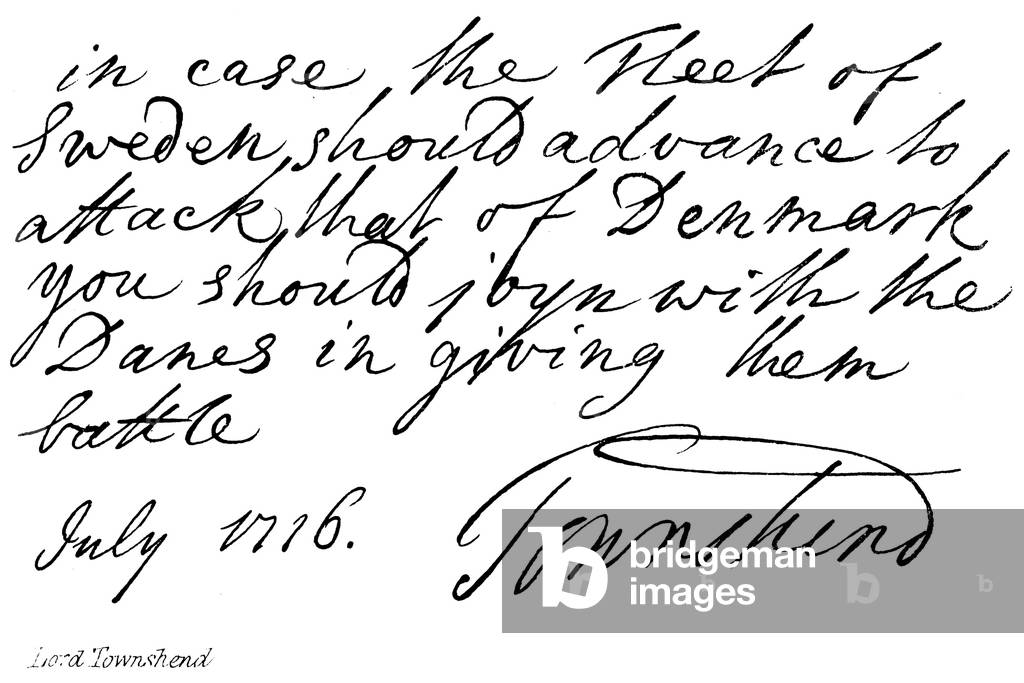 in case the Fleet of
Sweden should advance to
attack that of Denmark
you should joyn with the
Danes in giving them
battle
July 1716.
Townshend
bridgeman
images
Lord Townshend